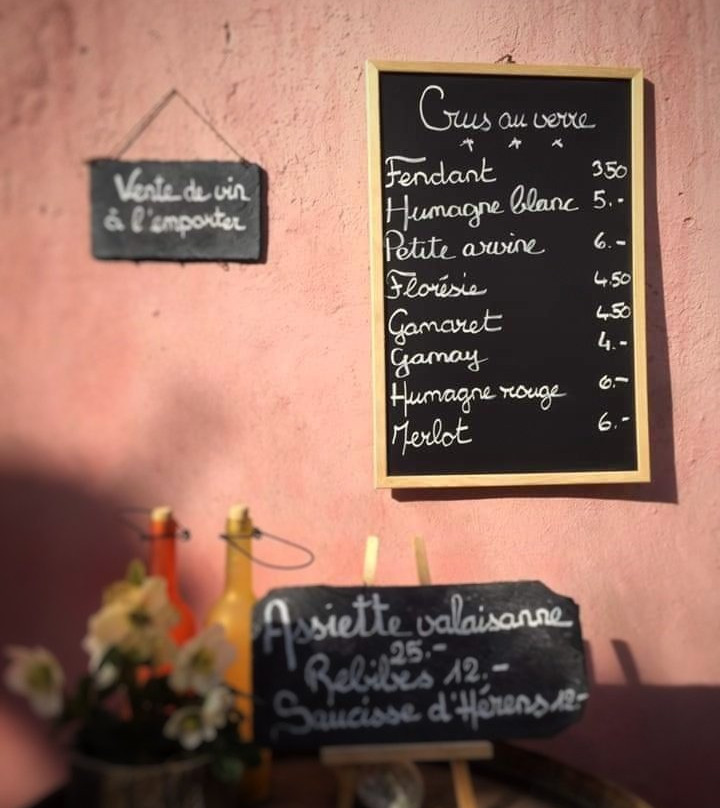 Vente de vin
à l'emporter
Crus au verre
Fendant 350
Humagne blanc 5.-
Petite arvine 6.-
Florésie 4.50
Gamaret 450
Gamay 4.-
Humagne rouge 6.-
Merlot 6.-
Assiette valaisanne
25.-
Rebibes 12.-
Saucisse d'Hérens 12-